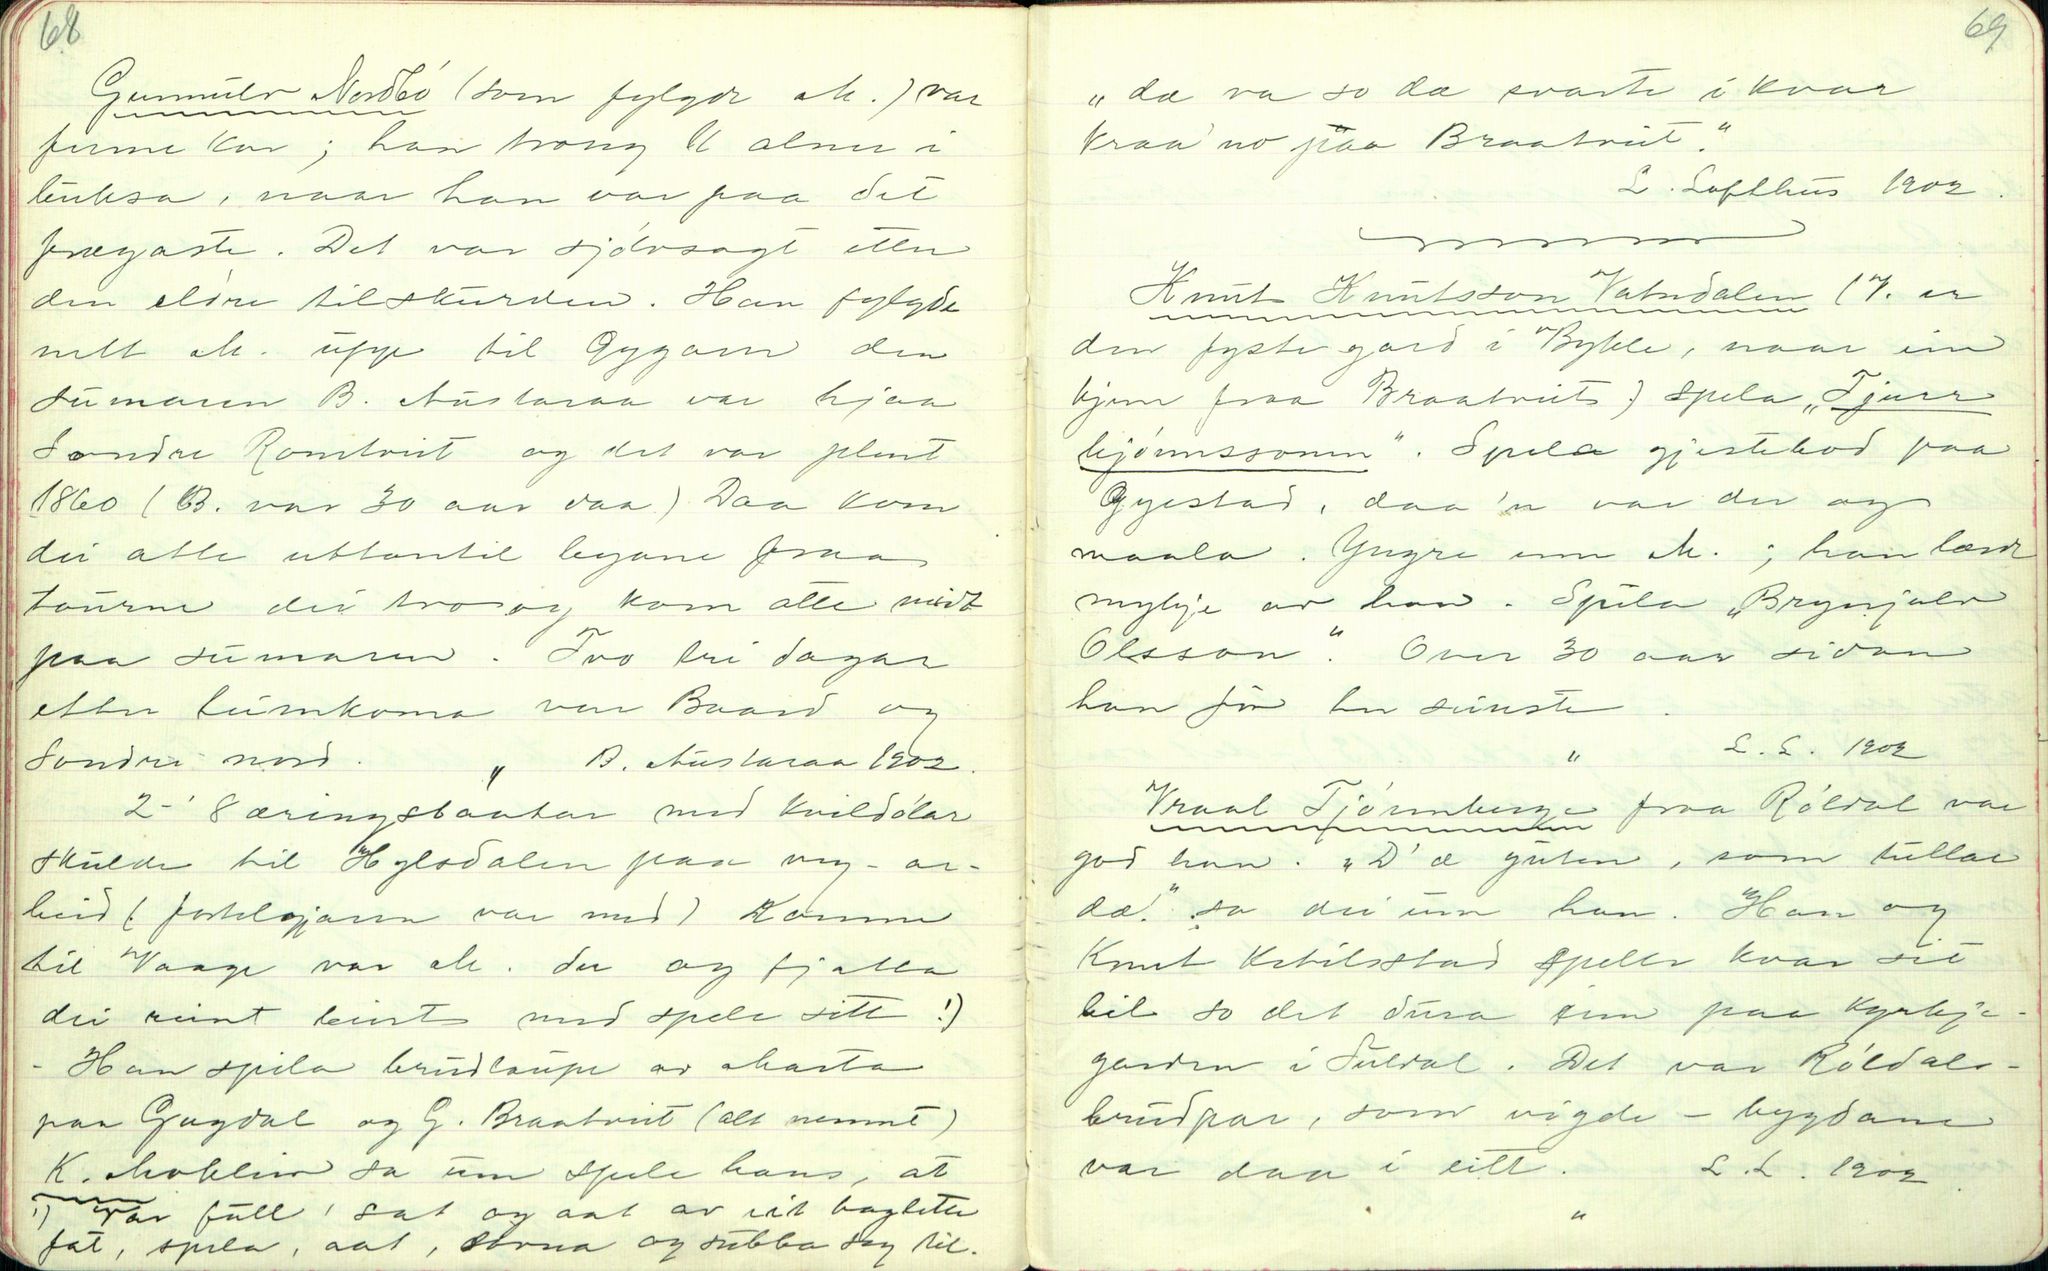 68
Gunnulv Nordbö (som fylgde M.) var
fime kar; han trong 11 alner i
buksa, naar han var paa det
frægaste. Det var sjölvsagt etter
den eldre tilskurden. Han fylgde
nett M. uppe til Gygarn den
sumaren B. Austaraa var hjaa
Sondre Romtveit og det var plent
1860 (B. var 30 aar daa) Daa kom
dei atte uttantil byane fraa
tourne dei tvo og kom atte midt
paa sumaren. Tvo tri dagar
etter heimkoma var Baard og
Sondre nord. B. Austaraa 1902.
"
2-' 8 æringsbaatar med kvildölar
skulde til Hylsdalen paa veg-ar-
beid (fortelgjaren var med) Komne
til Vaage var M. der og fjatla
dei reint beint med spele sitt !)
- Han spela brudlaupe av Marta
paa Gugdal og G. Braatveit (alt nemnt)
K. Mokleiv sa um spele hans, at
!) Var full, sat og aat av eit baglette
fat, spela, aat, sovna og subba seg til.
69
„dæ va so dæ svarte i kvar
kraa no paa Braatveit."
L. Lofthus 1902.
Knut Knutsson Vatndalen (V. er
den fyste gard i Bykle, naar ein
kjem fraa Braatveit) spela „Tjurr
bjönnssonen". Spela gjestebod paa
Gyestad, daa 'n var der og
maala. Yngre enn M.; han lærde
mykje av han. Spela „Brynjulv
Olsson". Over 30 aar sidan
han for her seinste.
" L. L. 1902
Vraal Tjörnnberge fraa Röldal var
god han. „D'æ guten, som tullar
dæ." sa dei um han. Han og
Knut Ketilsstad spelte kvar sit
bil so det dura um paa kyrkje-
garden i Suldal. Det var Röldals-
brudpar, som vigde - bygdane
var daa i eitt. L. L. 1902.
"